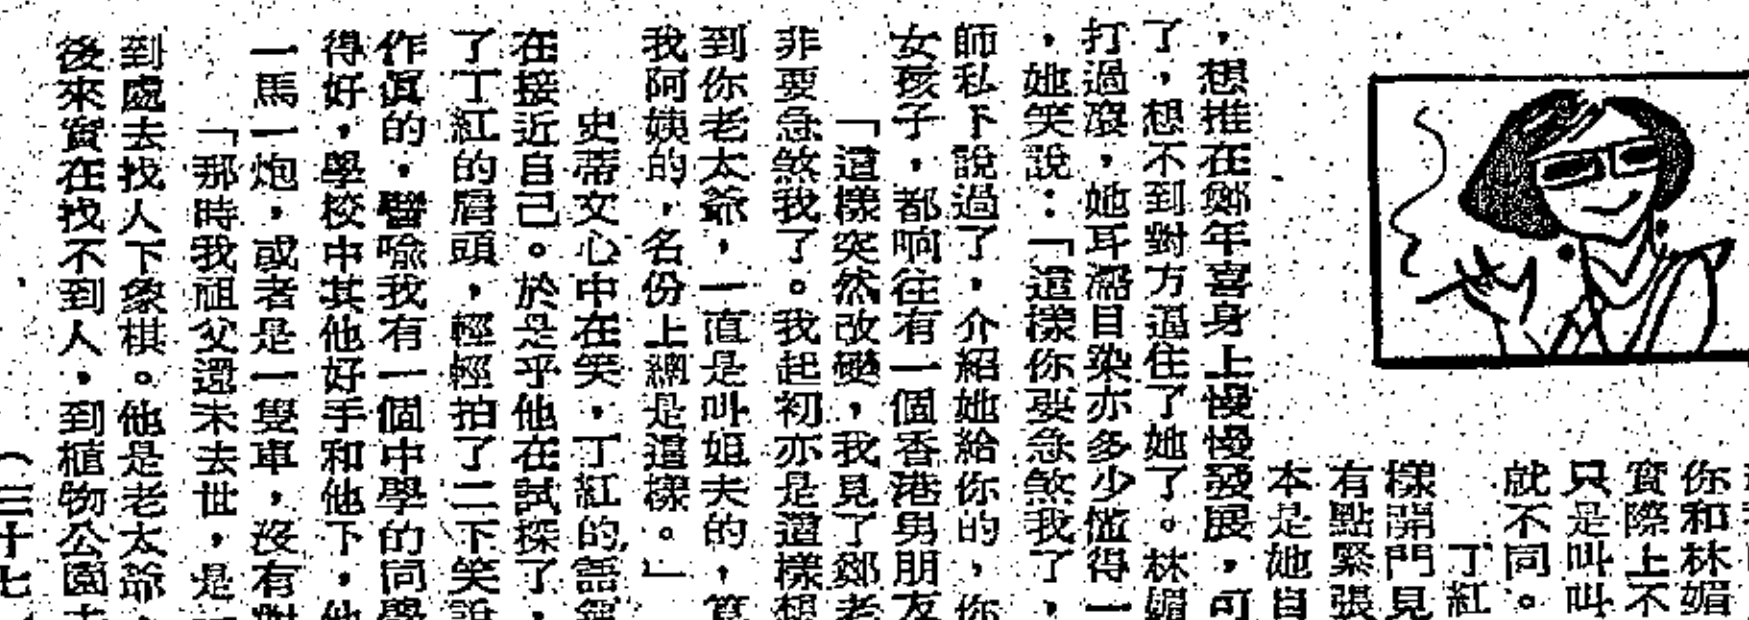 你和林媚
實際上不
只是叫叫
就不同。
丁紅
樣開門見
有點緊張
本是她自
，想推在鄭年喜身上慢慢發展，可
了，想不到對方逼住了她了。林媚
打過滾，她耳濡目染亦多少懂得一
，她笑說：「這樣你要急煞我了，
師私下說過了，介紹她給你的，你
女孩子，都响往有一個香港男朋友
「這樣突然改變，我見了鄭老
非要急煞我了。我起初亦是這樣想
到你老太爺，一直是叫姐夫的，算
我阿姨的，名份上總是這樣。」
史蒂文心中在笑，丁紅的語氣
在接近自己。於是乎他在試探了，
了丁紅的肩頭，輕輕拍了二下笑說
作眞的，譬喻我有一個中學的同學
得好，學校中其他好手和他下，他
一馬一炮，或者是一隻車，沒有對
「那時我祖父還未去世，是
到處去找人下象棋。他是老太爺，
後來實在找不到人，到植物公園去
（三十七